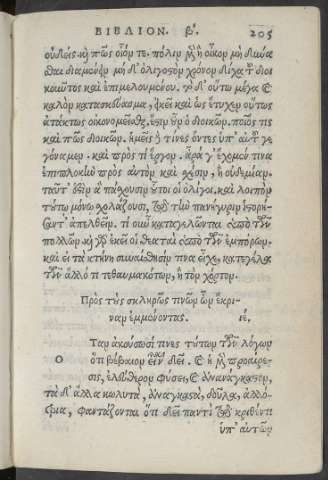 ΒΙΒΛΙΟΝ. β'. 205
οὐδείς. καὶ πῶς οἷόν τε, πόλιν μὲν ἢ οἶκον μὴ δύνα
σθαι διαμένειν μὴ δ' ὀλιγοστὸν χρόνον δίχα τοῦ διοι
κοῦντος καὶ ἐπιμελουμένου. τὸ δ' οὕτω μέγα καὶ
καλὸν κατασκεύασμα, εἰκῆ καὶ ὡς ἔτυχεν οὕτως
ἀτάκτως οἰκονομεῖσθαι. ἔστιν οὖν ὁ διοικῶν. ποῖός τις
καὶ πῶς διοικῶν. ἡμεῖς δὲ τίνες ὄντες ὑπ' αὐτοῦ γε
γόναμεν. καὶ πρὸς τί ἔργον. ἆρά γ' ἔχομέν τινα
ἐπιπλοκὴν πρὸς αὐτὸν καὶ σχέσιν, ἢ οὐδεμίαν.
ταῦτ' ἔστιν ἃ πάσχουσιν οὗτοι οἱ ὀλίγοι, καὶ λοιπὸν
τούτῳ μόνῳ σχολάζουσι, τῷ τὴν πανήγυριν ἱστορή
σαντ' ἀπελθεῖν. τί οὖν καταγελῶνται ὑπὸ τῶν
πολλῶν. καὶ γὰρ ἐκεῖ οἱ θεαταὶ ὑπὸ τῶν ἐμπόρων.
καὶ εἰ τὰ κτήνη συναίσθησίν τινα εἶχε, κατεγέλα
τῶν ἄλλό τι τεθαυμακότων, ἢ τὸν χόρτον.
Πρὸς τοὺς σκληρῶς τινῶν ὧν ἔκρι-
ναν ἐμμένοντας. ιε,
Ὅταν ἀκούσωσί τινες τούτων τῶν λόγων
ὅτι βέβαιον εἶναι δεῖ. καὶ ἡ μὲν προαίρε-
σις, ἐλεύθερον φύσει, καὶ ἀνανάγκαστον,
τὰ δ' ἄλλα κωλυτὰ, ἀναγκαστὰ, δοῦλα, ἀλλό-
τρια, φαντάζονται ὅτι δεῖ παντὶ τῷ κριθέντι
ὑπ' αὐτῶν